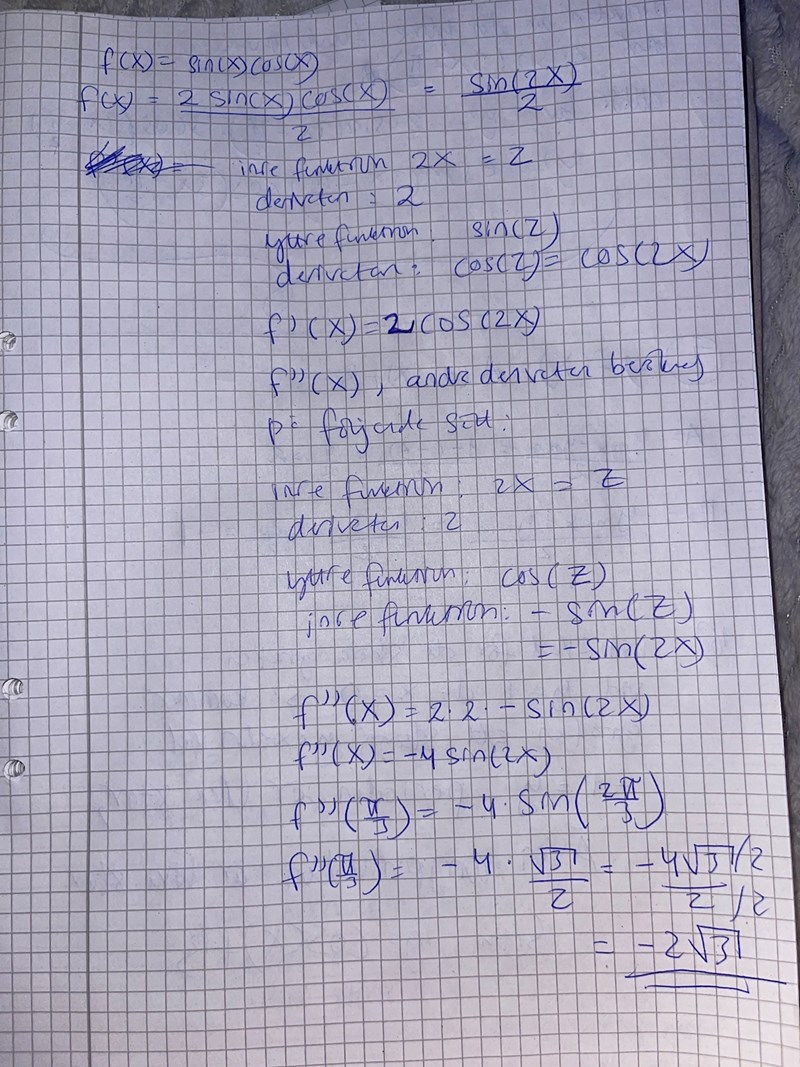 f(x) = sin(x)cos(x)
f(x) = 2 sin(x) cos(x) / 2 = sin(2x) / 2
inre funktion 2x = z
derivatan : 2
yttre funktion. sin(z)
derivatan: cos(z) = cos(2x)
f'(x) = 2 cos(2x)
f''(x), andra derivatan
på följande sätt:
inre funktion: 2x = z
derivatan : 2
yttre funktion: cos(z)
inre funktion: - sin(z)
= - sin(2x)
f''(x) = 2·2· - sin(2x)
f''(x) = -4 sin(2x)
f''(π/3) = -4· sin(2π/3)
f''(π/3) = -4 · √3/2 = -4√3/2 / 2/2
= -2√3